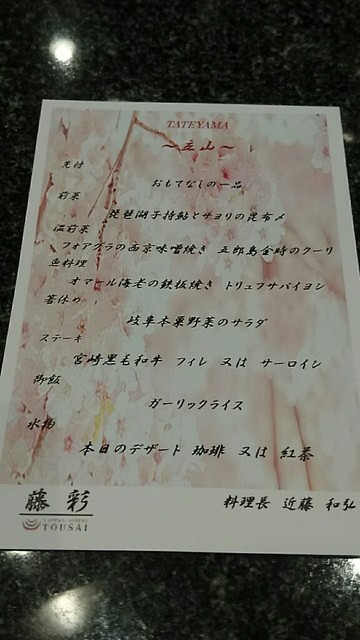 TATEYAMA
～立山～
先付
おもてなしの一品
前菜
琵琶湖子持鮎とサヨリの昆布〆
温前菜
フォアグラの西京味噌焼き 五郎島金時のクーリ
魚料理
オマール海老の鉄板焼き トリュフサバイヨン
箸休め
岐阜本巣野菜のサラダ
ステーキ
宮崎黒毛和牛 フィレ 又は サーロイン
御飯
ガーリックライス
水物
本日のデザート 珈琲 又は 紅茶
藤 彩
料理長 近藤 和弘
TOUSAI